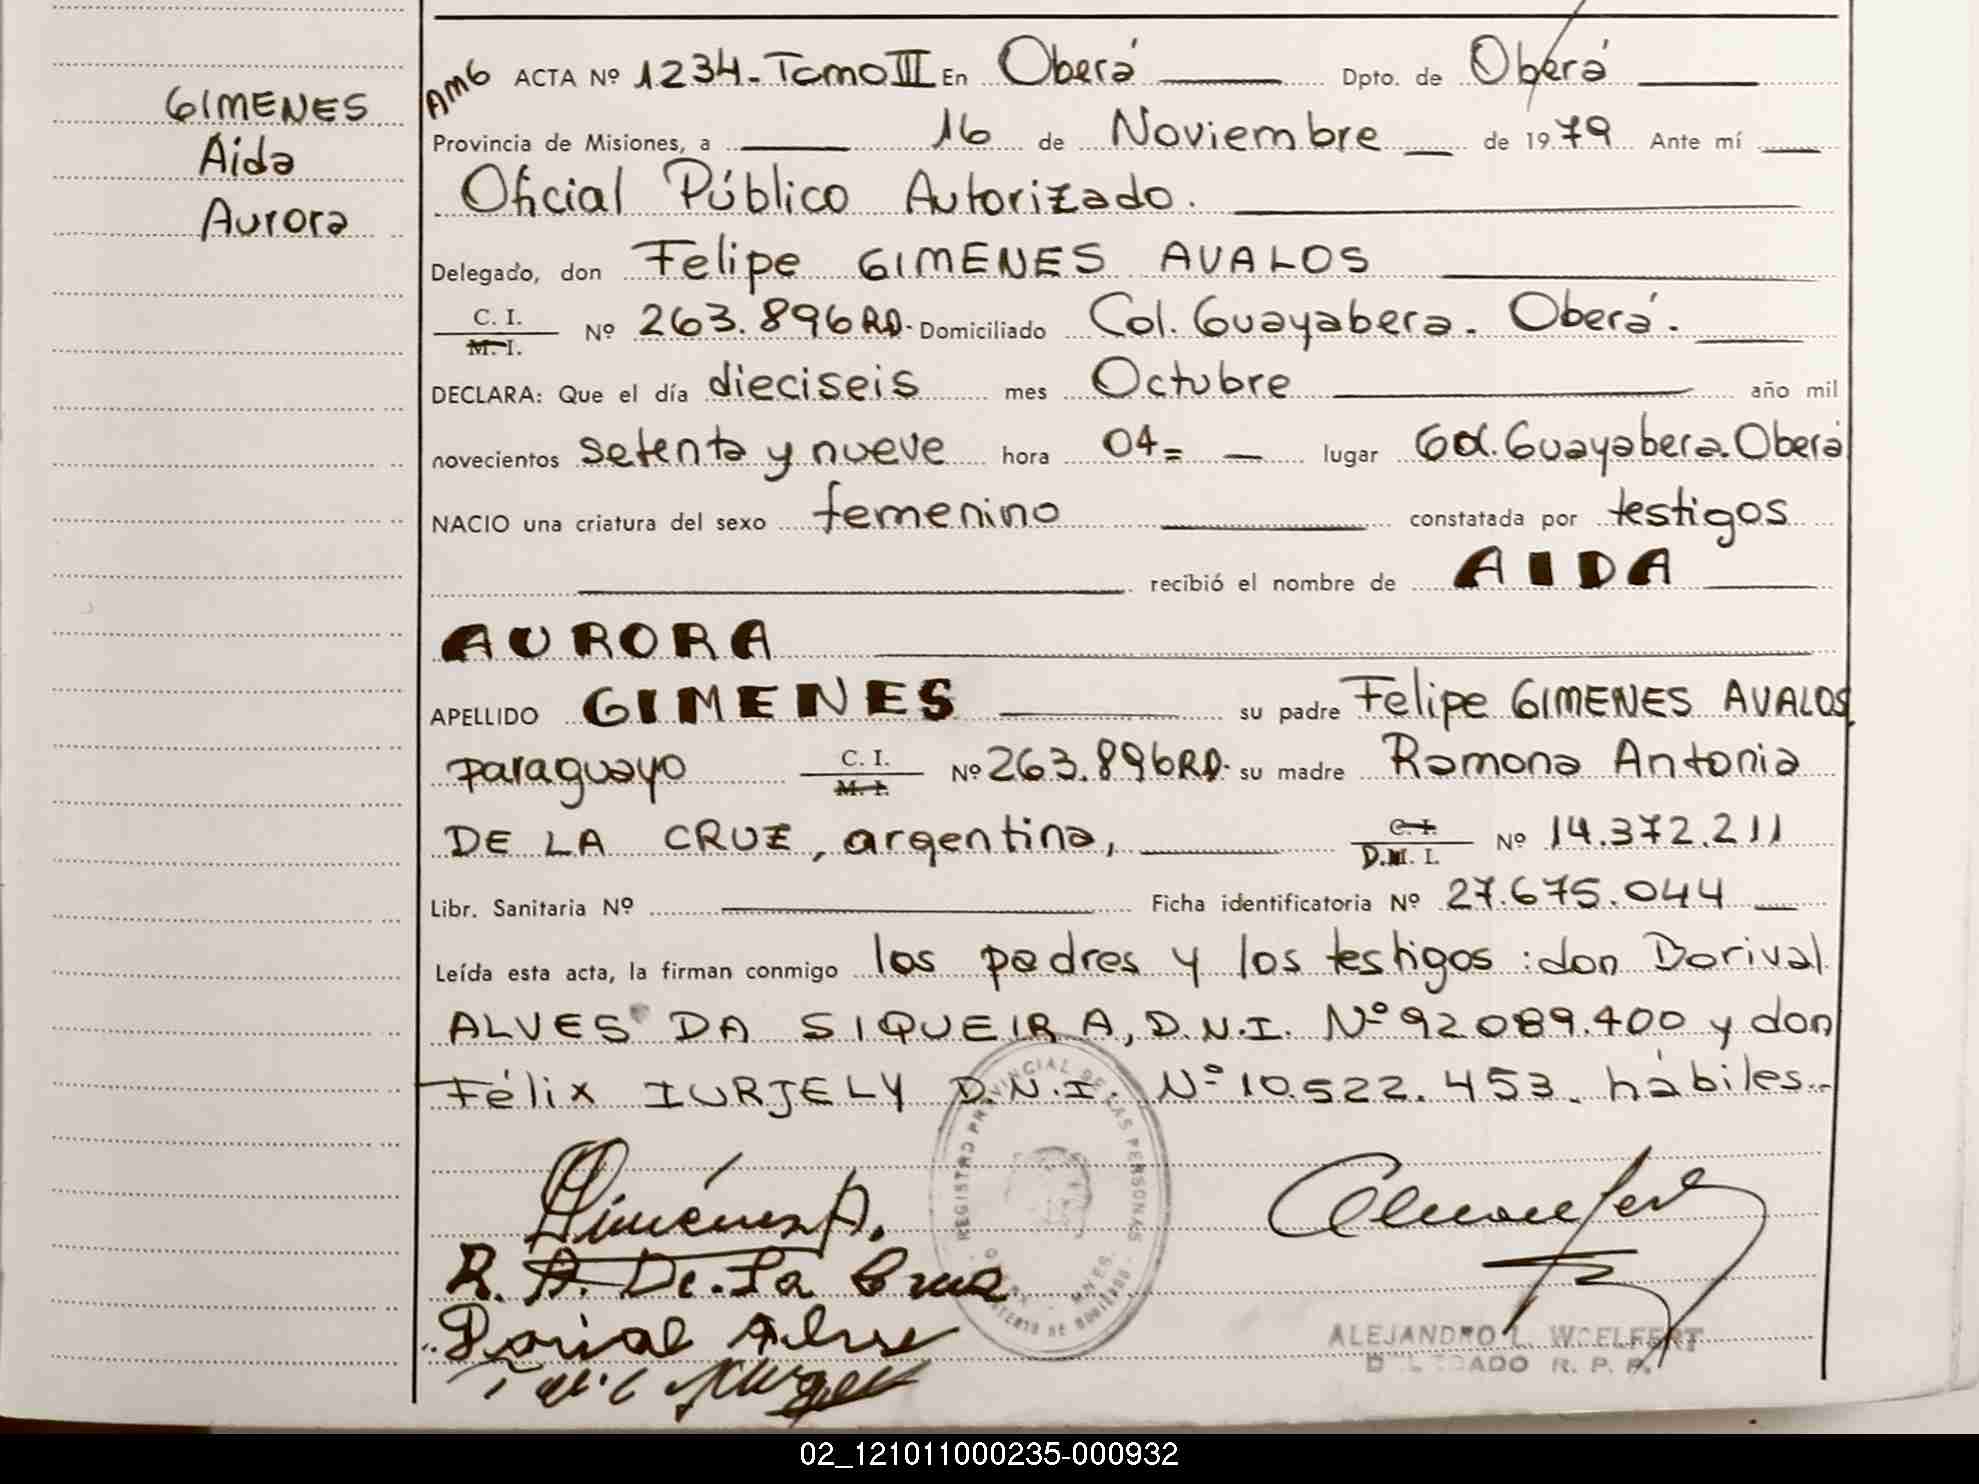 GIMENES
Aida
Aurora
AMG ACTA Nº 1234. Tomo III En Oberá Dpto. de Oberá
Provincia de Misiones, a 16 de Noviembre de 1979 Ante mí
Oficial Público Autorizado.
Delegado, don Felipe GIMENES AVALOS
C. I. M. I. Nº 263.896 RD. Domiciliado Col. Guayabera. Oberá.
DECLARA: Que el día dieciseis mes Octubre año mil
novecientos setenta y nueve hora 04= lugar Col. Guayabera. Oberá
NACIO una criatura del sexo femenino constatada por testigos
recibió el nombre de AIDA
AURORA
APELLIDO GIMENES su padre Felipe GIMENES AVALOS,
paraguayo C. I. M. I. Nº 263.896 RD. su madre Ramona Antonia
DE LA CRUZ, argentina, C. I. D.M. I. Nº 14.372.211
Libr. Sanitaria Nº Ficha identificatoria Nº 27.675.044
Leída esta acta, la firman conmigo los padres y los testigos: don Dorival
ALVES DA SIQUEIRA, D.N.I. Nº 92089.400 y don
Félix IURJELY D.N.I. Nº 10.522.453. hábiles.-
Giménez A.
R. A. De. La Cruz
Dorival Alves
REGISTRO PROVINCIAL DE LAS PERSONAS
MNES.
ALEJANDRO L. WOELFERT
DELEGADO R. P. P.
02_121011000235-000932